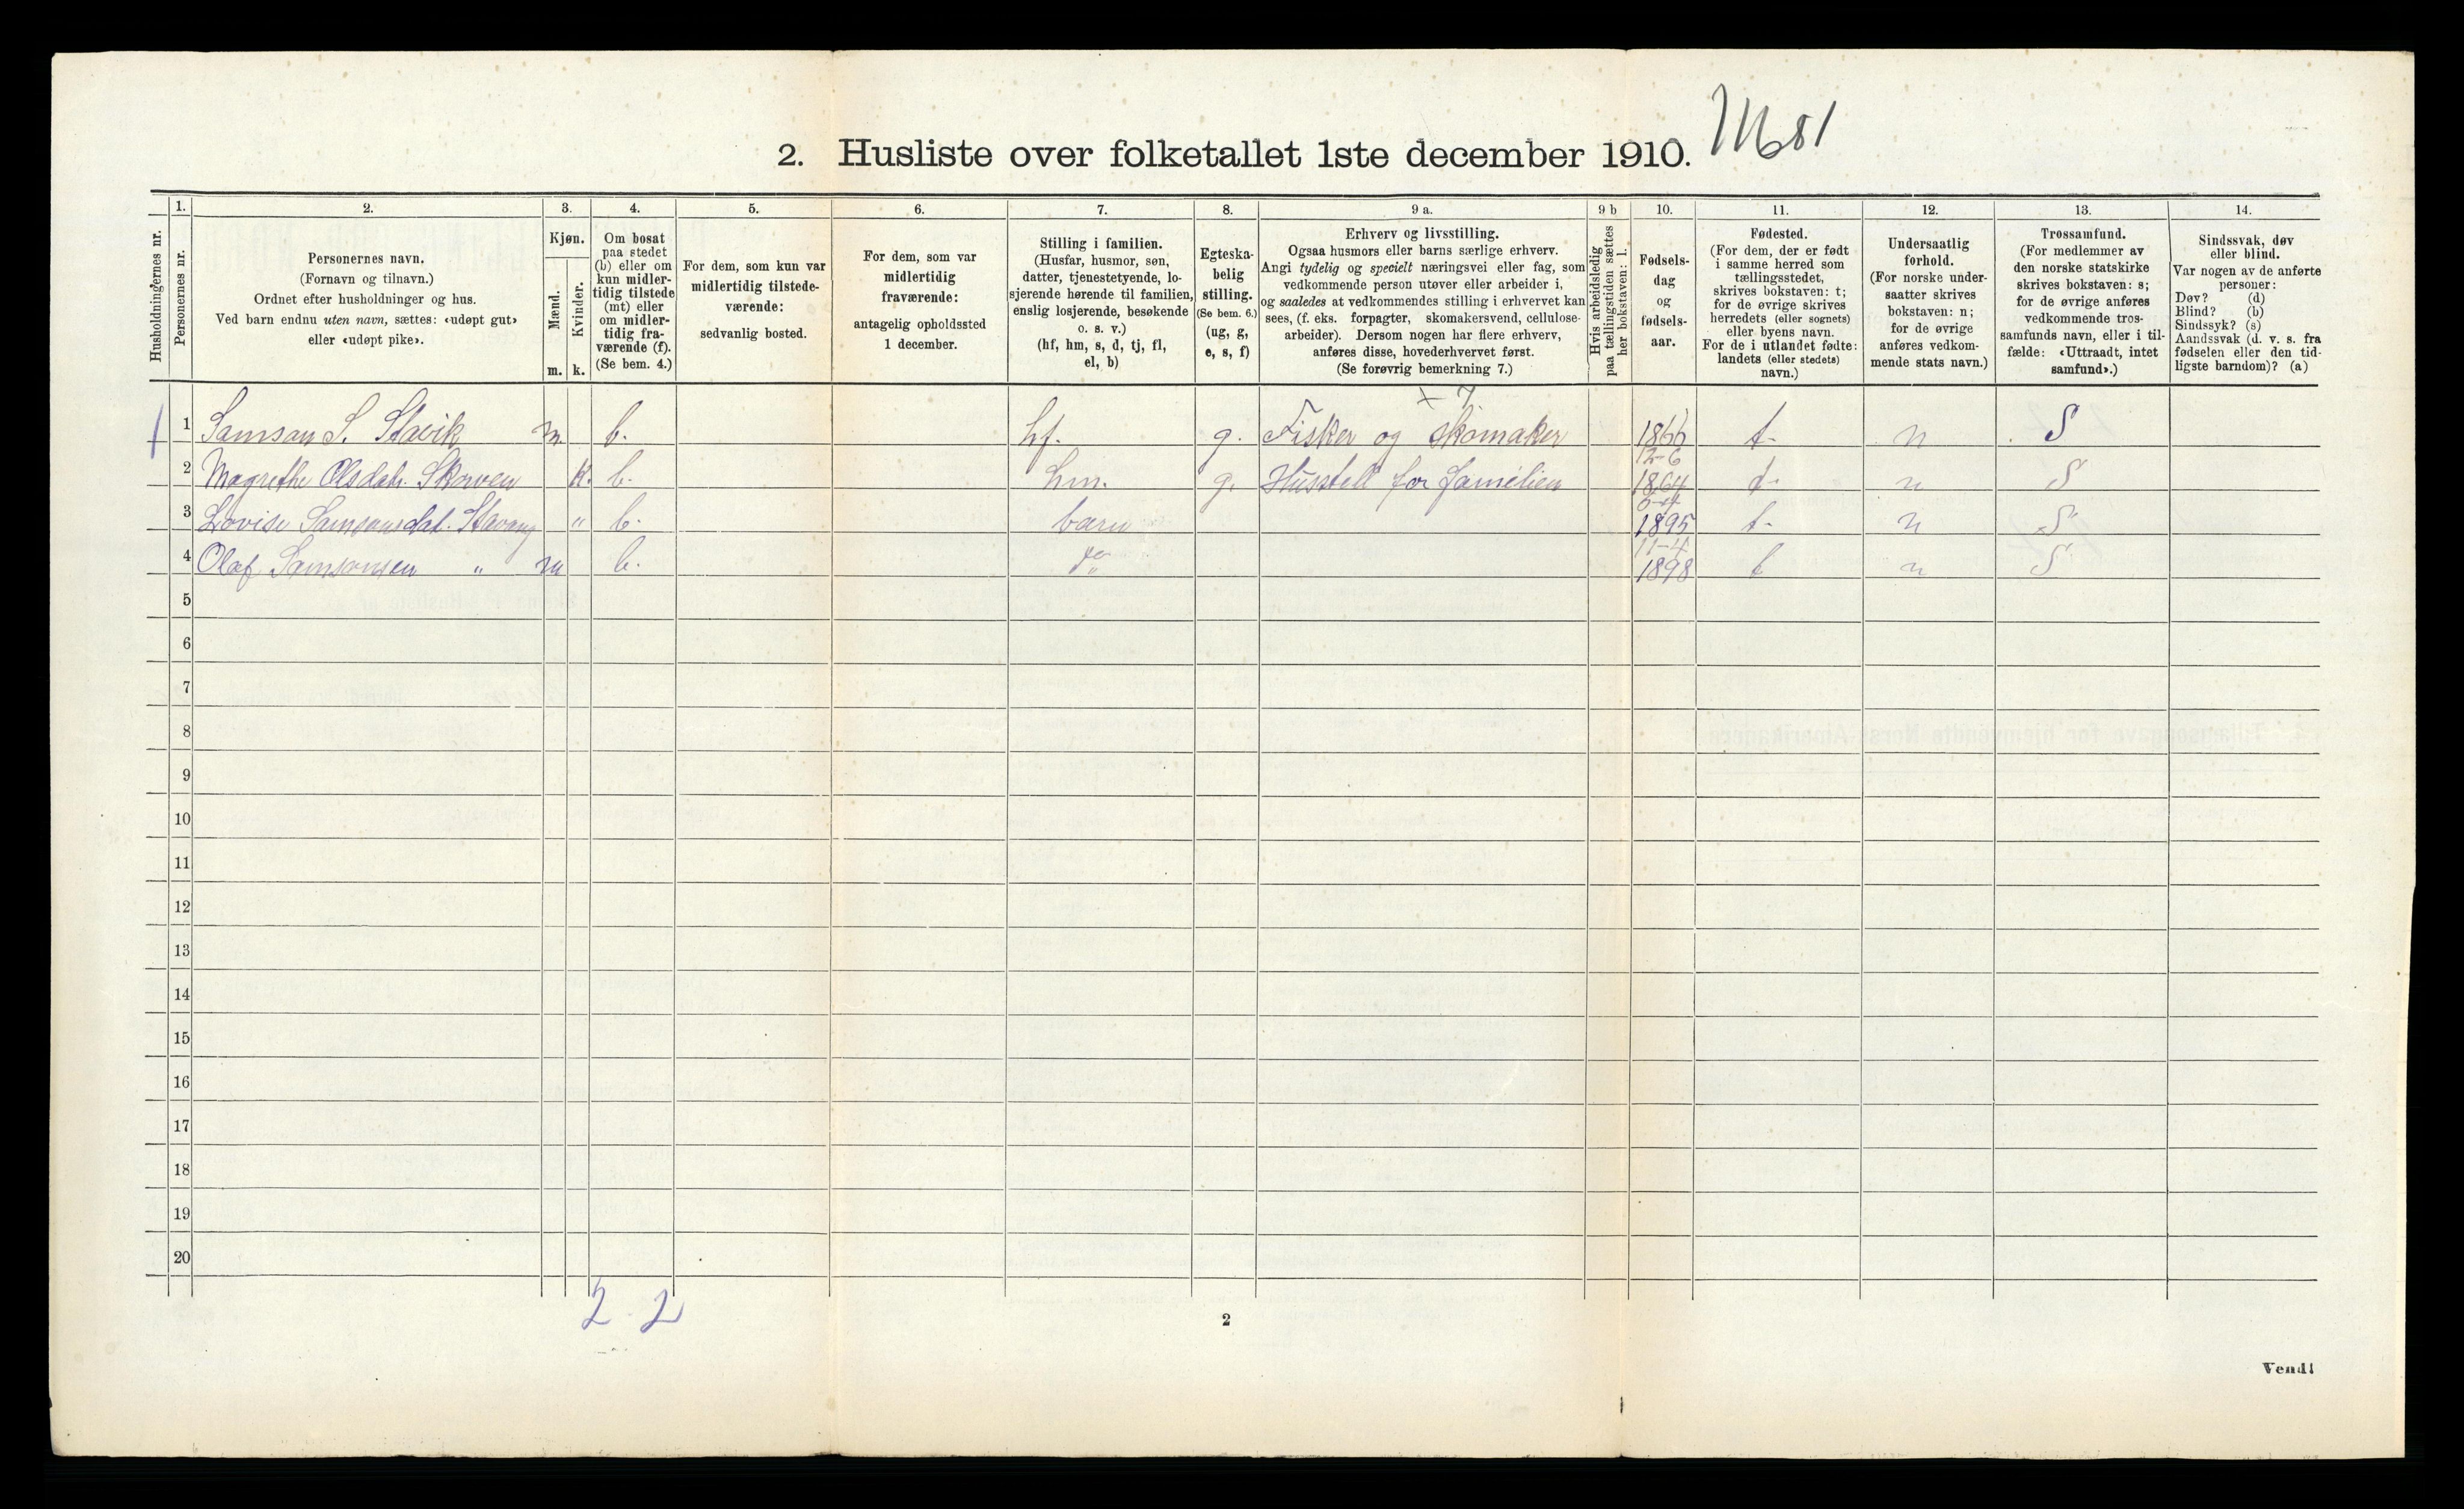 2. Husliste over folketallet 1ste december 1910.
Husholdningernes nr.
1.
Personernes nr.
2.
Personernes navn.
(Fornavn og tilnavn.)
Ordnet efter husholdninger og hus.
Ved barn endnu uten navn, sættes: «udøpt gut»
eller «udøpt pike».
3.
Kjøn.
Mænd.
Kvinder.
m. k.
4.
Om bosat
paa stedet
(b) eller om
kun midler-
tidig tilstede
(mt) eller
om midler-
tidig fra-
værende (f).
(Se bem. 4.)
5.
For dem, som kun var
midlertidig tilstede-
værende:
sedvanlig bosted.
6.
For dem, som var
midlertidig
fraværende:
antagelig opholdssted
1 december.
7.
Stilling i familien.
(Husfar, husmor, søn,
datter, tjenestetyende, lo-
sjerende hørende til familien,
enslig losjerende, besøkende
o. s. v.)
(hf, hm, s, d, tj, fl,
el, b)
8.
Egteska-
belig
stilling.
(Se bem. 6.)
(ug, g,
e, s, f)
9 a.
Erhverv og livsstilling.
Ogsaa husmors eller barns særlige erhverv.
Angi tydelig og specielt næringsvei eller fag, som
vedkommende person utøver eller arbeider i,
og saaledes at vedkommendes stilling i erhvervet kan
sees, (f. eks. forpagter, skomakersvend, cellulose-
arbeider). Dersom nogen har flere erhverv,
anføres disse, hovederhvervet først.
(Se forøvrig bemerkning 7.)
9 b
Hvis arbeidsledig
paa tællingstiden sættes
her bokstaven: l.
10.
Fødsels-
dag
og
fødsels-
aar.
11.
Fødested.
(For dem, der er født
i samme herred som
tællingsstedet,
skrives bokstaven: t;
for de øvrige skrives
herredets (eller sognets)
eller byens navn.
For de i utlandet fødte:
landets (eller stedets)
navn.)
12.
Undersaatlig
forhold.
(For norske under-
saatter skrives
bokstaven: n;
for de øvrige
anføres vedkom-
mende stats navn.)
13.
Trossamfund.
(For medlemmer av
den norske statskirke
skrives bokstaven: s;
for de øvrige anføres
vedkommende tros-
samfunds navn, eller i til-
fælde: «Uttraadt, intet
samfund».)
14.
Sindssvak, døv
eller blind.
Var nogen av de anførte
personer:
Døv? (d)
Blind? (b)
Sindssyk? (s)
Aandssvak (d. v. s. fra
fødselen eller den tid-
ligste barndom)? (a)
1 Samson S. Stavik m. b. hf. g. Fisker og skomaker 1866 t. n S
2 Magrethe Olsdatr. k. b. hm. g. Husstell for familien 12-6 1864 t. n S
3 Lovise Samsonsdat. Stavang " b. barn 1895 t. n S
4 Olaf Samsonsen " m b. do " 11-4 1898 t n S
5
6
7
8
9
10
11
12
13
14
15
16
17
18
19
20
2 2
2
Vend!